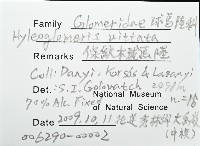 Family Glomeridae 球馬陸科
Hyleoglomeris vittata
Remarks 條紋球馬陸
Coll: Danyi, Korsós & Lazányi
Det. S.I. Golovatch
National Museum
of Natural Science
70% Alc. Fixed
Date 2009.10.11
006290-00002